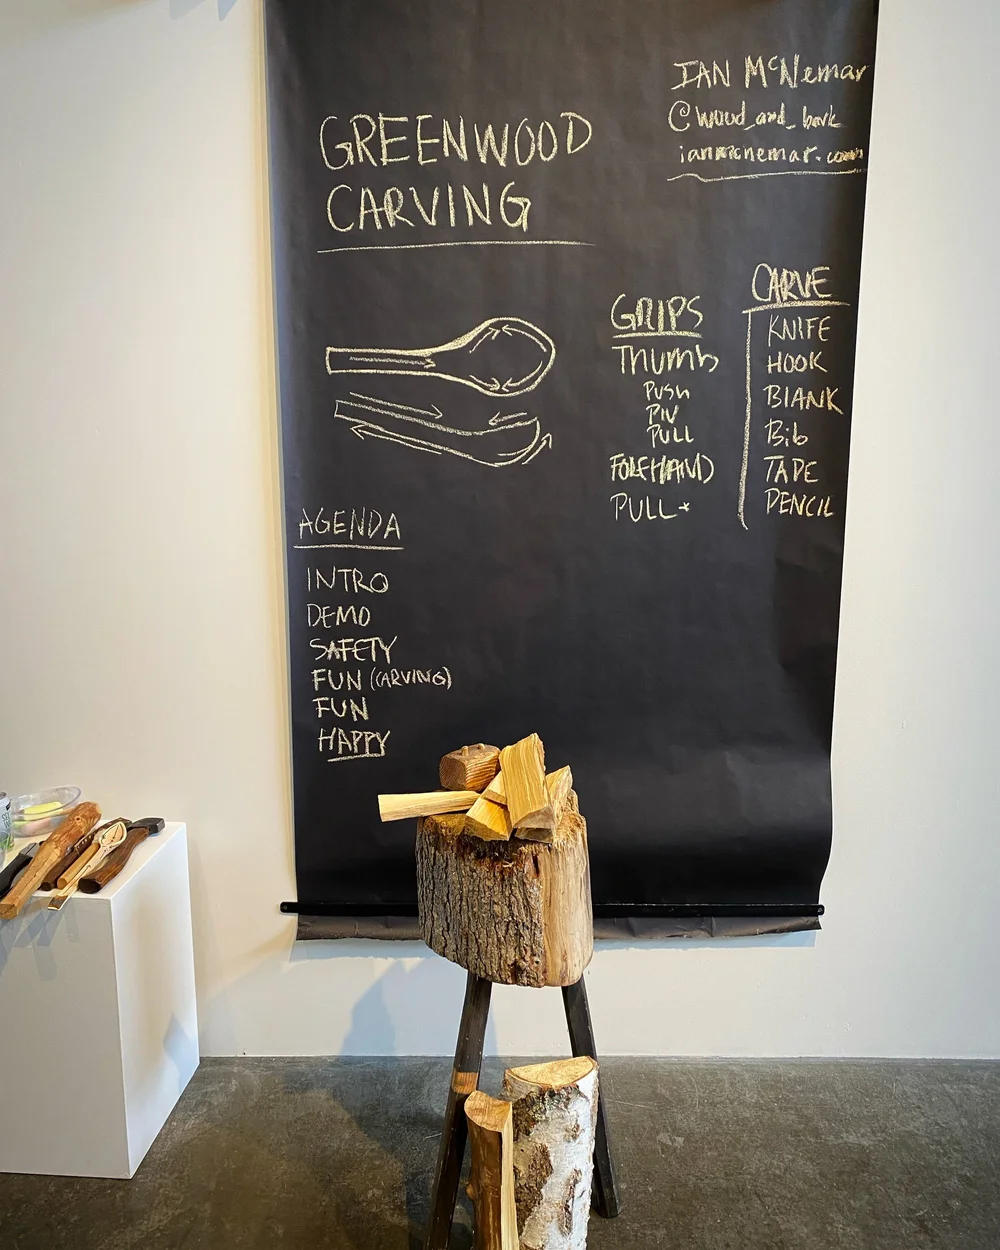 IAN McNemar
@wood_and_bark
ianmcnemar.com
GREENWOOD
CARVING
GRIPS
Thumb
PUSH
PIV
PULL
FOREHAND
PULL
CARVE
KNIFE
HOOK
BLANK
Bib
TAPE
PENCIL
AGENDA
INTRO
DEMO
SAFETY
FUN (CARVING)
FUN
HAPPY